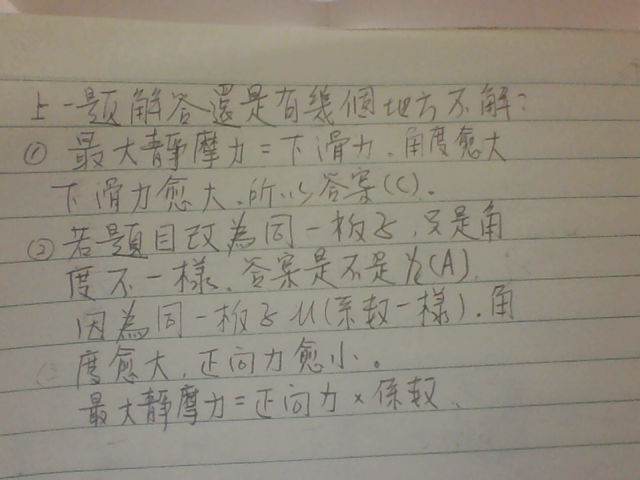 上一題解答還是有幾個地方不解?
① 最大靜摩力=下滑力.角度愈大
下滑力愈大.所以答案(C).
② 若題目改為同一板子.只是角
度不一樣.答案是不是為(A).
因為同一板子 U(系數一樣).角
度愈大.正向力愈小。
最大靜摩力=正向力×係數.